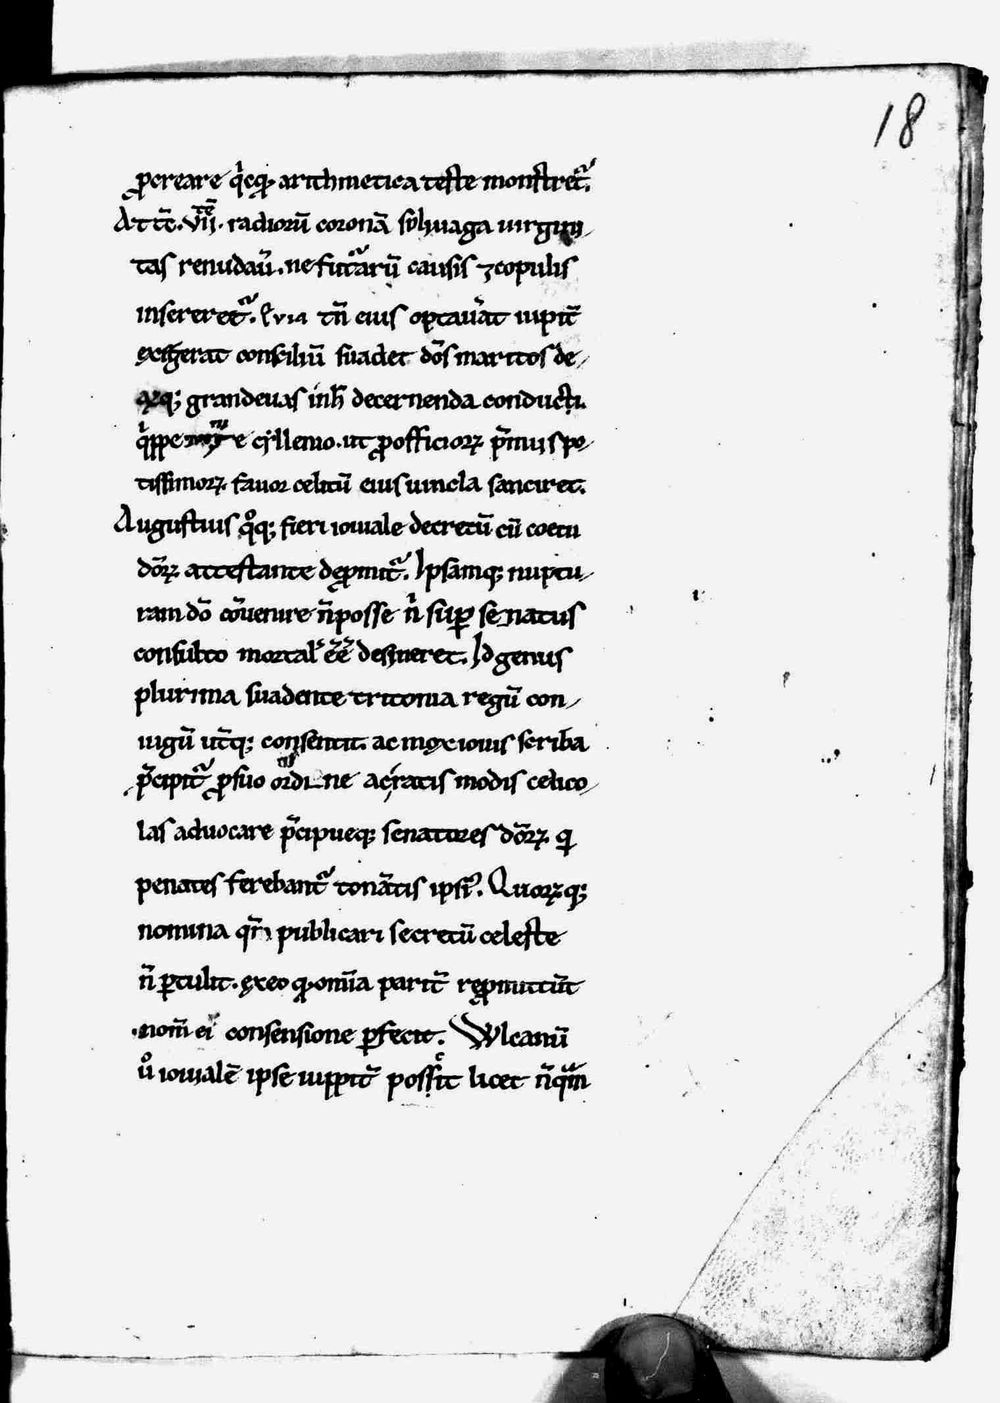 18
ꝓcreare q̇cq̨ arithmetica teste monstret᷑.
At tc̄ .vii. radiorū coronā soliuaga uirgini-
tas renudauı̄. ne futurarū causis ⁊ copulis
insereret᷑. Quia tn̄ eius optauerat iupit̄
exigerat consiliū suadet dōs maritos de-
grandeuas inh̄ decernenda conducti.
cyllenio. ut ꝓ officioꝝ p̄mii spe-
tissimoꝝ. fauor celitū eius uincla sanciret.
Augustius qͦq; fieri iouiale decretū cū coetu
dōꝝ attestante deꝓmit᷑. Ipsamq; nuptu-
ram dō cōuenire n̄ posse n̄ suꝑ senatus
consulto mortal̓ eē desineret. Id genus
plurima suadente tritonia regū con-
iugū ut̄q; consentit. ac mox iouis scriba
p̄cipit᷑ ꝓ suo ordine ac ratis modis celico-
las aduocare p̄cipueq; senatores dōꝝ qi
penates ferebant᷑ tonātis ipsi᷒. Quoꝝq;
nomina qm̄ publicari secretū celeste
n̄ ꝑtulit. ex eo q̨ omīa parit̄ reꝓmittūt
nom̄ ei consensione ꝑfecit. Wlcanū
uͦ iouialē ipse iuppit̄ poss&it licet n̄qͣm